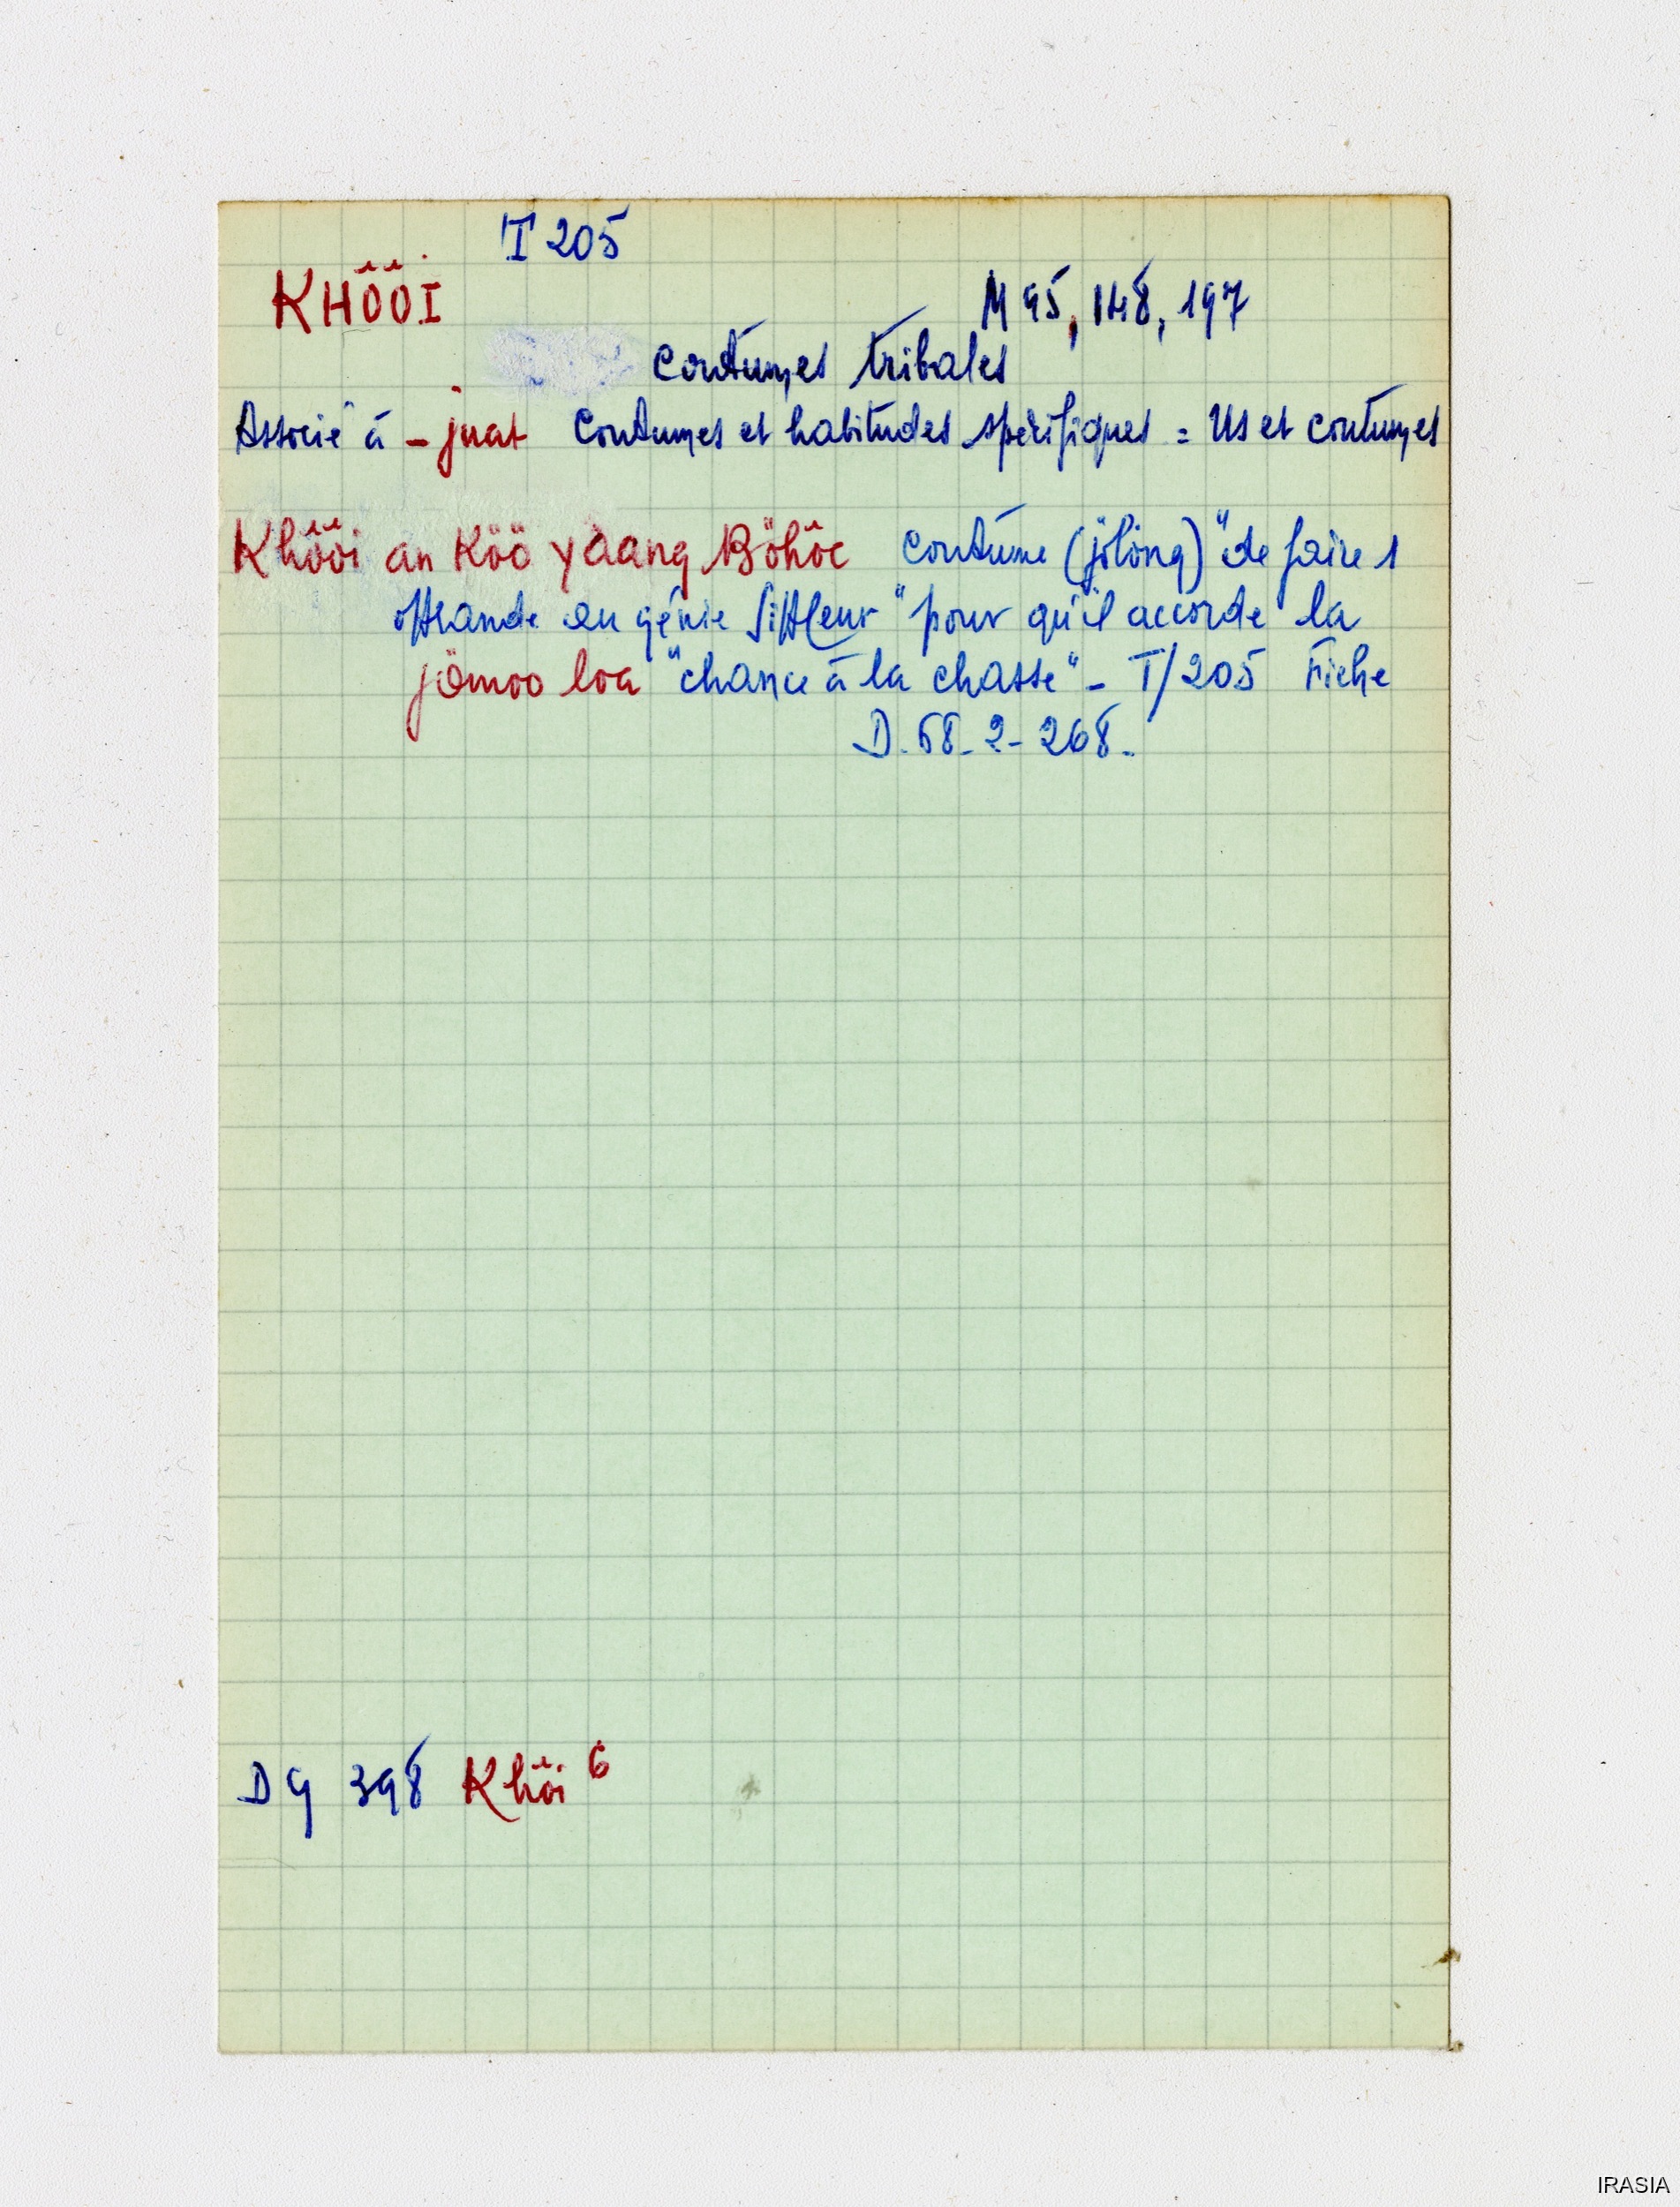 T 205
KHÔÔI
M 95, 148, 197
Coutumes tribales
Associé à - juat Coutumes et habitudes spécifiques = Us et coutumes
Khôôi an Köö yaang Böhôc coutume (jölong) "de faire 1
offrande au génie siffleur" pour qu'il accorde la
jömoo loa "chance à la chasse" - T/205 Fiche
D. 68-2-268.
D 9 398 Khôi 6
IRASIA